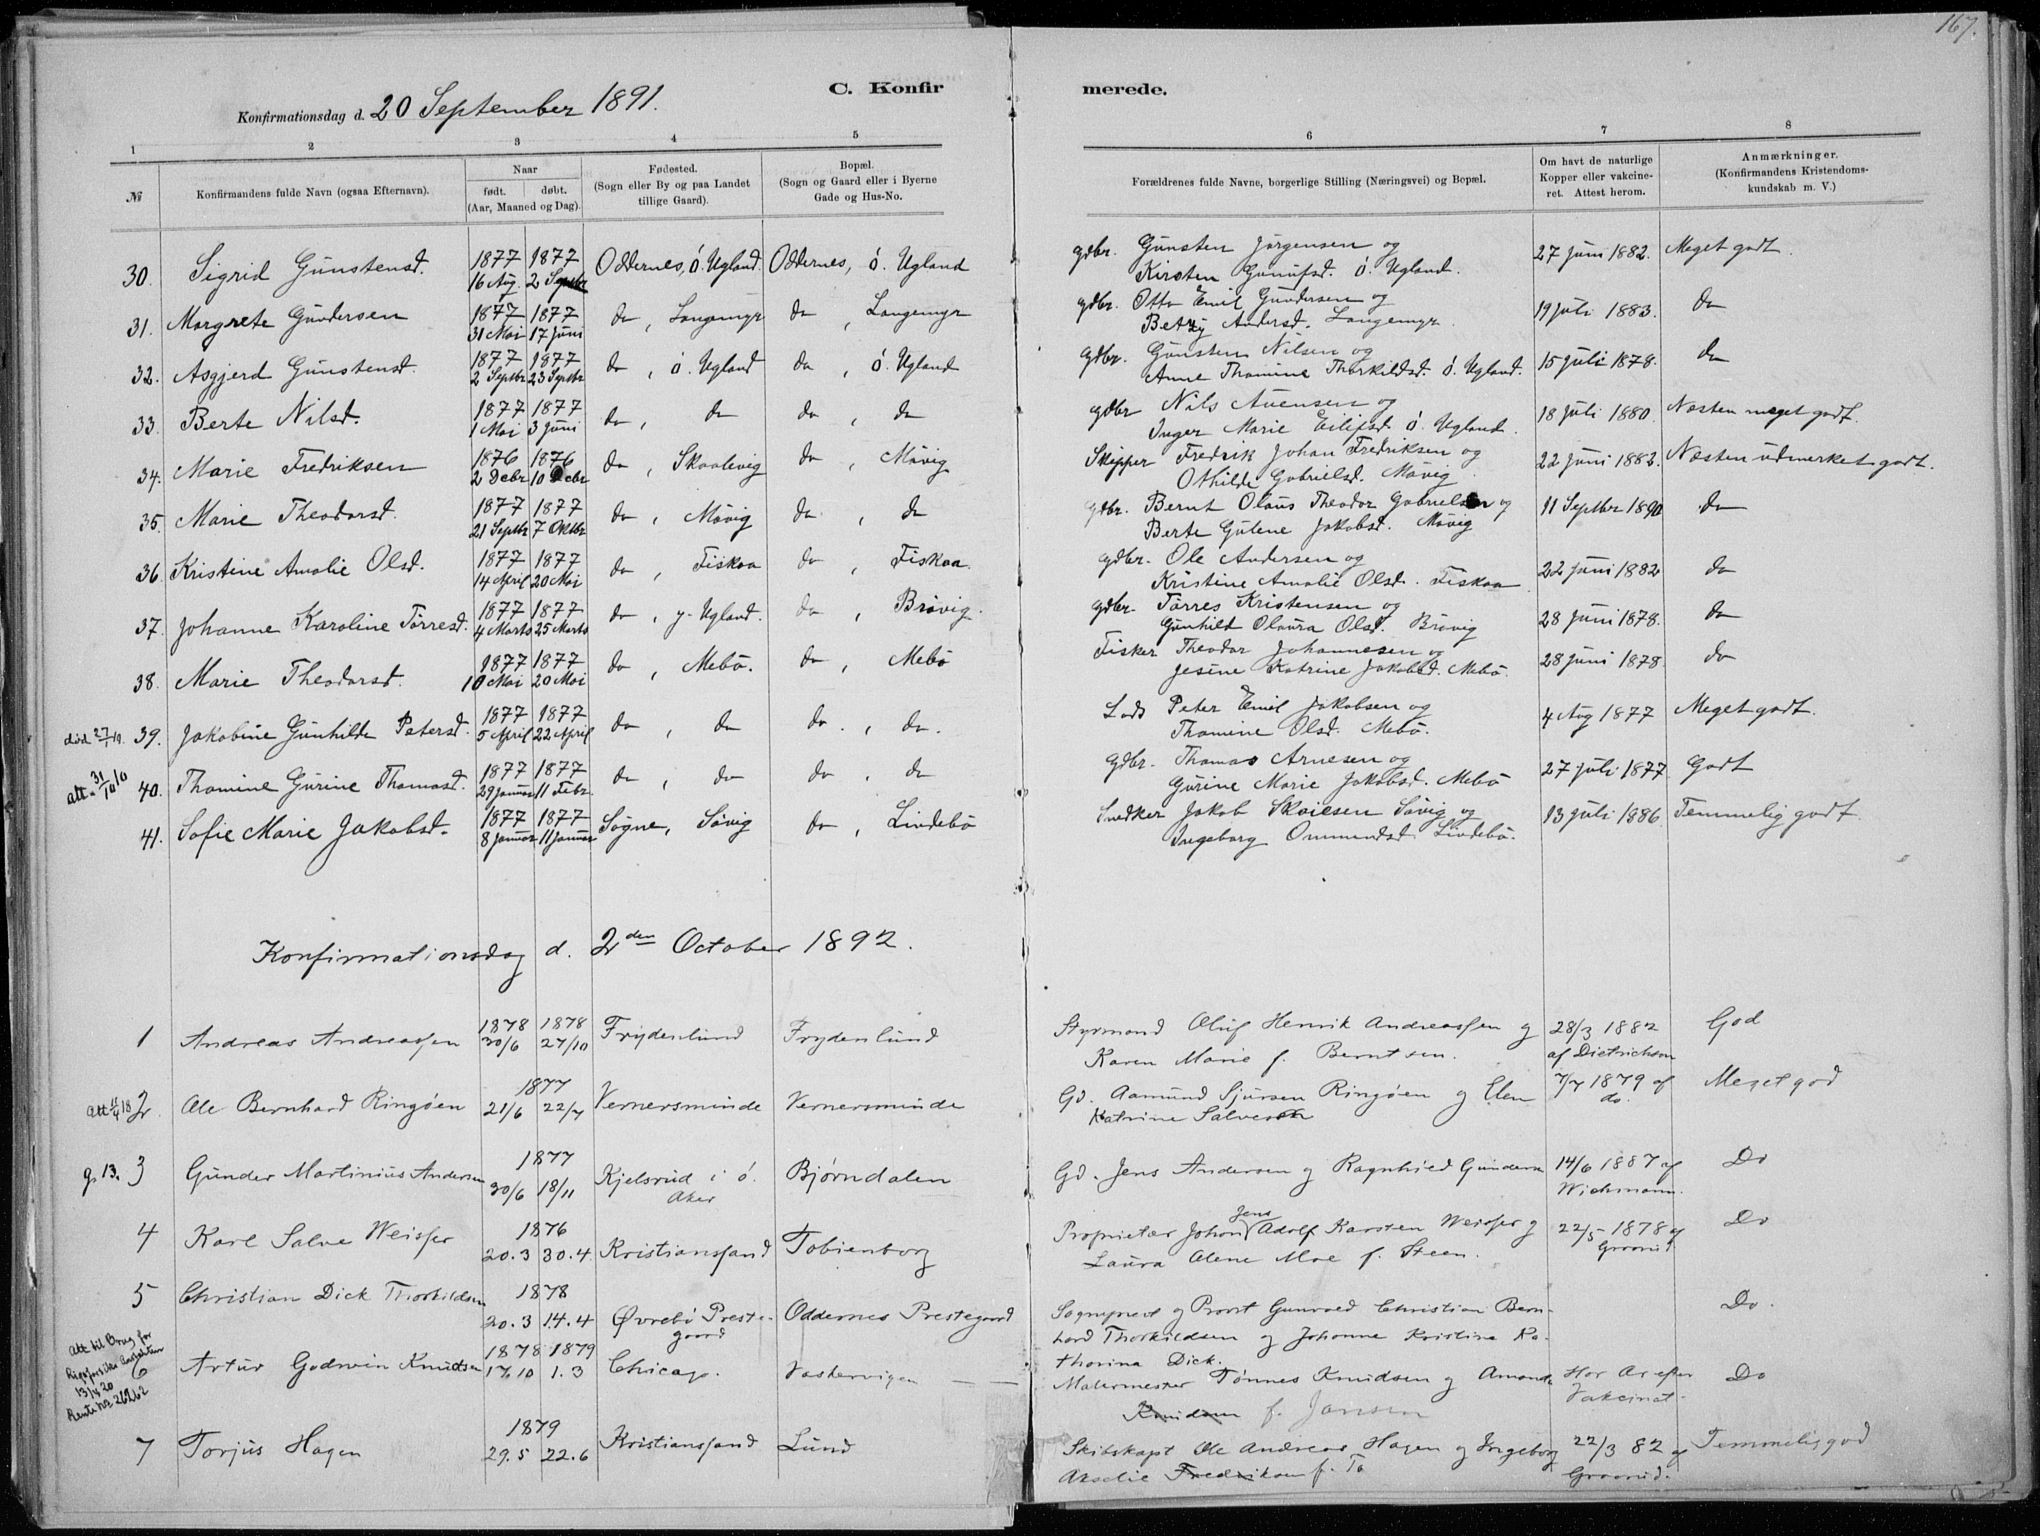 167.
C. Konfirmerede.
Konfirmationsdag d. 20 September 1891.
1 2 3 4 5 6 7 8
№ Konfirmandens fulde Navn (ogsaa Efternavn). Naar født. døbt. (Aar, Maaned og Dag). Fødested. (Sogn eller By og paa Landet tillige Gaard). Bopæl. (Sogn og Gaard eller i Byerne Gade og Hus-No. Forældrenes fulde Navne, borgerlige Stilling (Næringsvei) og Bopæl. Om havt de naturlige Kopper eller vakcineret. Attest herom. Anmærkninger. (Konfirmandens Kristendomskundskab m. V.)
30. Sigrid Gunstensd. 1877 16 Aug. 1877 2 Septbr Oddernes, ö. Ugland. Oddernes, ö. Ugland gdbr. Gunsten Jörgensen og Kirsten Gunufsd. ö. Ugland. 27 juni 1882. Meget godt.
31. Margrete Gundersen 1877 31 Mai 1877 17 juni do, Langemyr do, Langemyr gdbr. Otto Emil Gundersen og Betzy Andersd. Langemyr. 19 juli 1883. do
32. Asgjerd Gunstensd. 1877 2 Septbr 1877 23 Septbr do, ö. Ugland do, ö. Ugland gdbr. Gunsten Nilsen og Anne Thomine Thorkildsd. ö. Ugland. 15 juli 1878. do
33. Berte Nilsd. 1877 1 Mai 1877 3 juni do, do do, do gdbr Nils Avensen og Inger Marie Eilifsd ö. Ugland. 18 juli 1880. Næsten meget godt.
34. Marie Fredriksen 1876 2 Debr 1876 10 Debr do, Skaalevig do, Mövig Skipper Fredrik Johan Fredriksen og Othilde Gabrielsd. Mövig. 22 juni 1882. Næsten udmerket godt.
35. Marie Theodorsd. 1877 21 Septbr 1877 7 Oktbr do, Mövig do, do gdbr. Bernt Olaus Theodor Gabrielsen og Berte Gutene Jakobsd. Mövig 11 Septbr 1890 do
36. Kristine Amalie Olsd. 1877 14 April 1877 20 Mai do, Fiskaa do, Fiskaa. gdbr. Ole Andersen og Kristine Amalie Olsd. Fiskaa 22 juni 1882 do
37. Johanne Karoline Törresd. 1877 4 Marts 1877 25 Marts do, y. Ugland. do, Brövig. gdbr. Törres Kristensen og Gunhild Olaura Olsd. Brövig 28 juni 1878. do
38. Marie Theodorsd. 1877 10 Mai 1877 20 Mai do, Mebö. do, Mebö Fisker Theodor Johannesen og Jesine Katrine Jakobsd. Mebö. 28 juni 1878. do
död 27/1 19. 39. Jakobine Gunhilde Petersd. 1877 5 April 1877 22 April do, do do, do. Lods Peter Emil Jakobsen og Thomine Olsd. Mebö. 4 Aug 1877 Meget godt.
att. 31/10 10 40. Thomine Gurine Thomasd. 1877 29 januar 1877 11 Febr. do, do do, do gdbr. Thomas Arnesen og Gurine Marie Jakobsd. Mebö 27 juli 1877. Godt
41. Sofie Marie Jakobsd. 1877 8 januar 1877 11 januar Sögne, Sövig do, Lindebö Snedker Jakob Skoiesen Sövig og Ingeborg Ommundsd. Lindebö. 13 juli 1886. Temmelig godt.
Konfirmationsdag d. 2den October 1892.
1 Andreas Andreassen 1878 30/6 1878 27/10 Frydenlund Frydenlund Styrmand Oluf Henrik Andreassen og Karen Marie f. Berntsen. 28/3 1882 af Dietrichson God
Att 18 2 Ole Bernhard Ringöen 1877 21/6 22/7 Vernersminde Vernersminde Gd. Aamund Sjursen Ringöen og Elen Katrine Salvesen 7/7 1879 af do. Meget god
g. 13. 3 Gunder Martinius Andersen 1877 30/6 18/11 Kjelsrud i ö. Aker Bjørndalen Gd. Jens Andersen og Ragnhild Gunders 14/6 1887 af Wichmann. Do
4 Karl Salve Weisser 1876 20.3 30.4 Kristianssand Tobienborg Proprietær Johan Jens Adolf Karsten Weisser og Laura Alene Moe f. Steen. 22/5 1878 af Do
5 Christian Dick Thorkildsen 1878 20.3 14.4 Øvrebö Prestegaard Oddernes Prestegaard Sognepræst og Provst Gunvald Christian Bernhard Thorkildsen og Johanne Kristine Kathorina Dick. Do.
Att til Brug for 13/4 20 6 Artur Godwin Knudsen 1878 17/10 1879 1.3 Chicago. Vaskervigen — — Malermester Tønnes Knudsen og Amanda Knudsen f. Jansen Har Ar efter Vakcinat. Do
7 Torjus Hagen 1879 29.5 22.6 Kristianssand Lund Skibskapt Ole Andreas Hagen og Ingeborg Akselie Fredriksen f. To 22/3 82 af Temmelig god